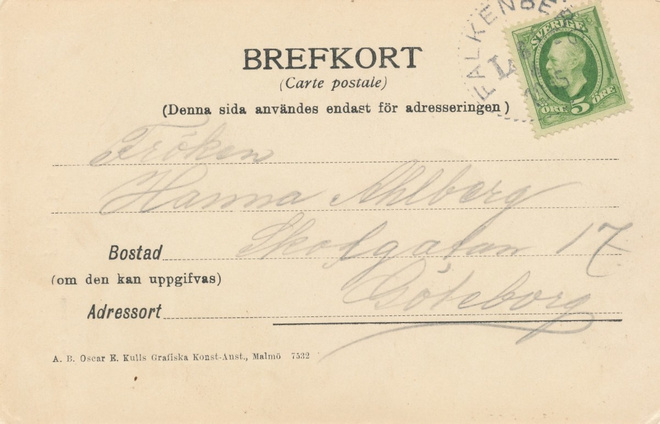 BREFKORT
(Carte postale)
(Denna sida användes endast för adresseringen)
FALKENBE
SVERIGE
ÖRE 5 ÖRE
Fröken
Hanna Ahlberg
Bostad Skolgatan 17
(om den kan uppgifvas)
Adressort Göteborg
A. B. Oscar E. Kulls Grafiska Konst-Anst., Malmö 7532